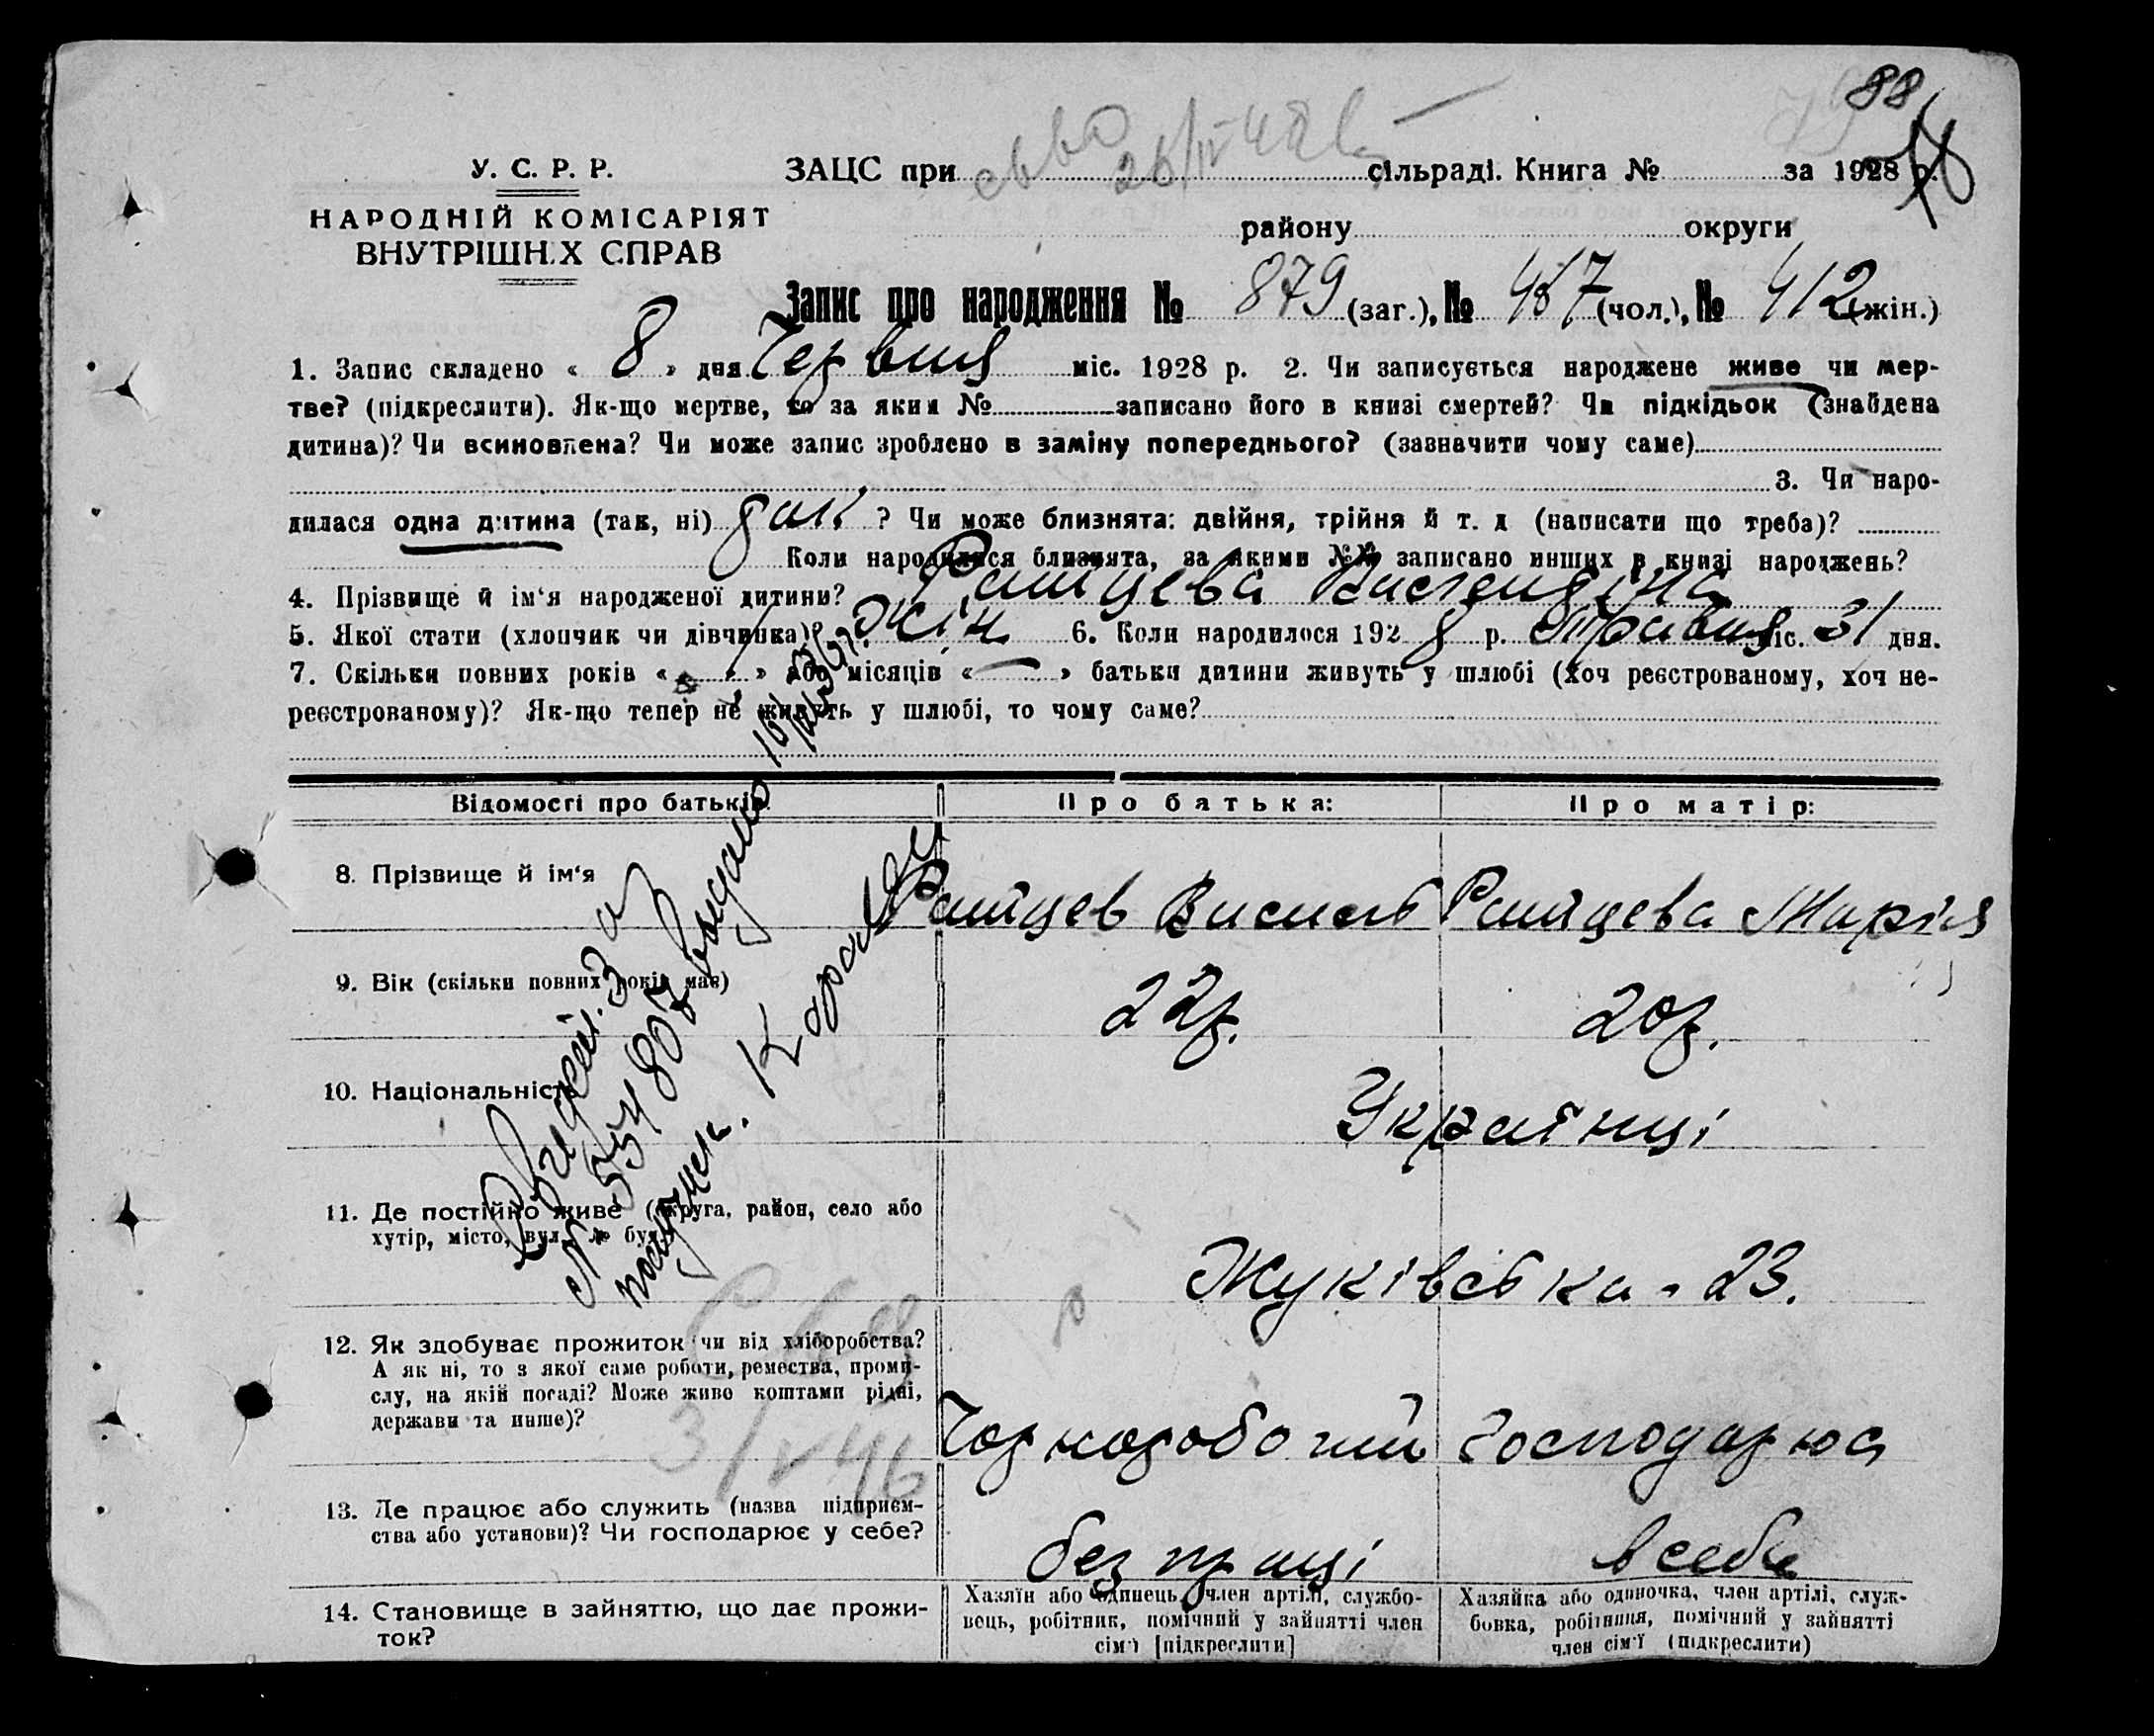 88
У. С. Р. Р.
НАРОДНІЙ КОМІСАРІЯТ
ВНУТРІШН.Х СПРАВ
ЗАЦС при сільраді. Книга № за 1928 р.
26/IV
району округи
Запис про народження № 879 (заг.), № 467 (чол.), № 412 (жін.)
1. Запис складено « 8 » дня Червня міс. 1928 р. 2. Чи записується народжене живе чи мер-
тве? (підкреслити). Як-що мертве, то за яким № записано його в книзі смертей? Чи підкідьок (знайдена
дитина)? Чи всиновлена? Чи може запис зроблено в заміну попереднього? (зазначити чому саме)
3. Чи наро-
дилася одна дитина (так, ні) так ? Чи може близнята: двійня, трійня й т. д (написати що треба)?
Коли народилися близнята, за якими №№ записано инших в книзі народжень?
4. Прізвище й ім‘я народженої дитини?
5. Якої стати (хлопчик чи дівчинка)? Жін. 6. Коли народилося 192 8 р. Травня міс. 31 дня.
7. Скільки повних років « » або місяців « — » батьки дитини живуть у шлюбі (хоч реєстрованому, хоч не-
реєстрованому)? Як-що тепер не живуть у шлюбі, то чому саме?
Відомості про батьків. Про батька: Про матір:
8. Прізвище й ім‘я
Марія
9. Вік (скільки повних років має) 22р. 20р.
10. Національність Українці
11. Де постійно живе (округа, район, село або
хутір, місто, вул. № буд.)
Жуківська - 23.
12. Як здобуває прожиток чи від хліборобства?
А як ні, то з якої саме роботи, ремества, проми-
слу, на якій посаді? Може живе коштами рідні,
держави та инше)?
Чорноробочий Господарює
13. Де працює або служить (назва підприєм-
ства або установи)? Чи господарює у себе?
без праці в себе
14. Становище в зайняттю, що дає прожи-
ток?
Хазяїн або одинець, член артілі, службо-
вець, робітник, помічний у зайнятті член
сім‘ї [підкреслити]
Хазяйка або одиночка, член артілі, служ-
бовка, робітниця, помічний у зайнятті
член сім‘ї (підкреслити)
видано
31/V 46